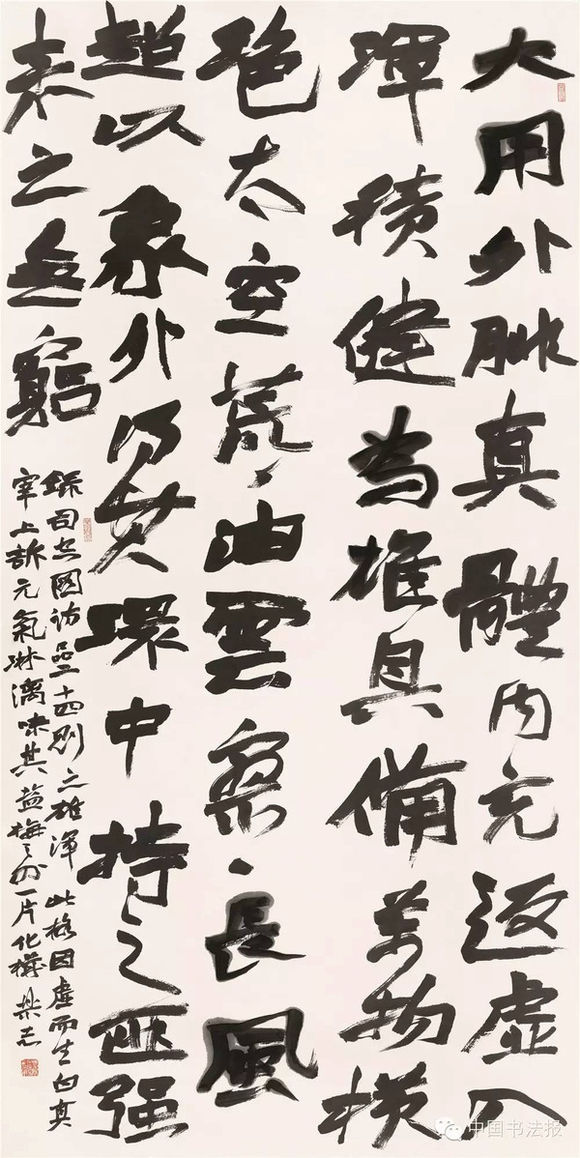 大用外腓真體内充返虛入
渾積健為雄具備萬物橫
絶太空荒々油雲寥々長風
超以象外得其環中持之匪强
来之無窮
錄司空圖詩品二十四則之雄渾 此格因虛而生 真
宰上訴元氣淋漓味其盐梅之外一片化機
中国书法报